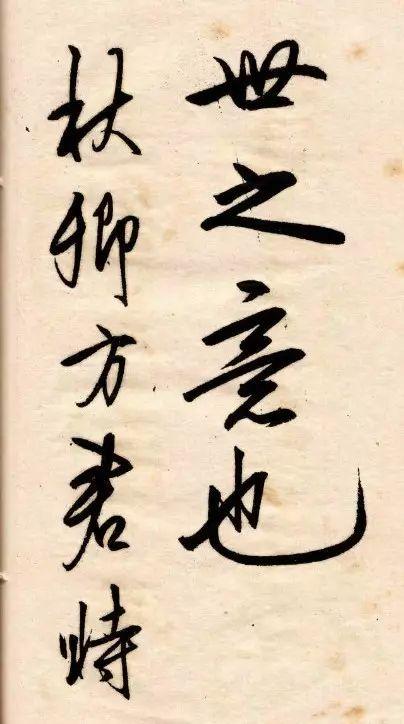 世之意也
秋卿方君時